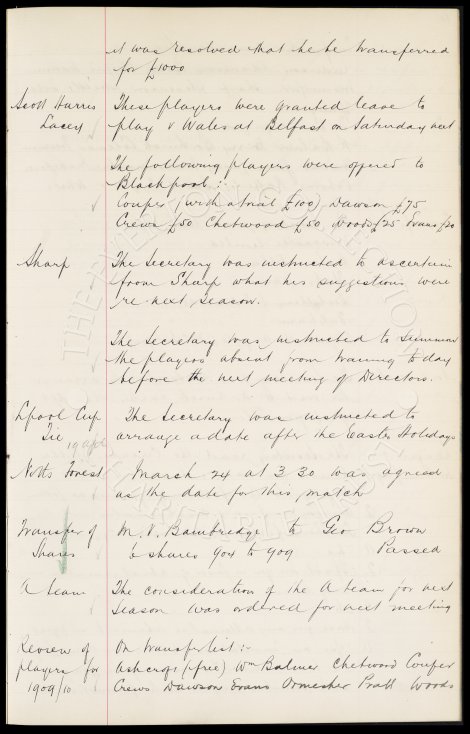 it was resolved that he be transferred
for £1000
Scott Harris These players were granted leave to
Lacey play v Wales at Belfast on Saturday next
The following players were offered to
Blackpool :-
Couper (with a trial £100) Dawson £75
Crews £50 Chetwood £50 Woods £25 Evans £20
Sharp The Secretary was instructed to ascertain
from Sharp what his suggestions were
re next season.
The Secretary was instructed to summon
the players absent from training to day
before the next meeting of Directors.
Lpool Cup The Secretary was instructed to
Tie 19 Apl arrange a date after the Easter Holidays
Notts Forest March 24 at 3.30 was agreed
as the date for this match
Transfer of M. V. Bainbridge to Geo Brown
Shares 6 shares 904 to 909 Passed
A team The consideration of the A team for next
season was ordered for next meeting
Review of On transfer list :-
players for Ashcroft (free) Wm Balmer Chetwood Couper
1909/10 Crews Dawson Evans Ormesher Pratt Woods